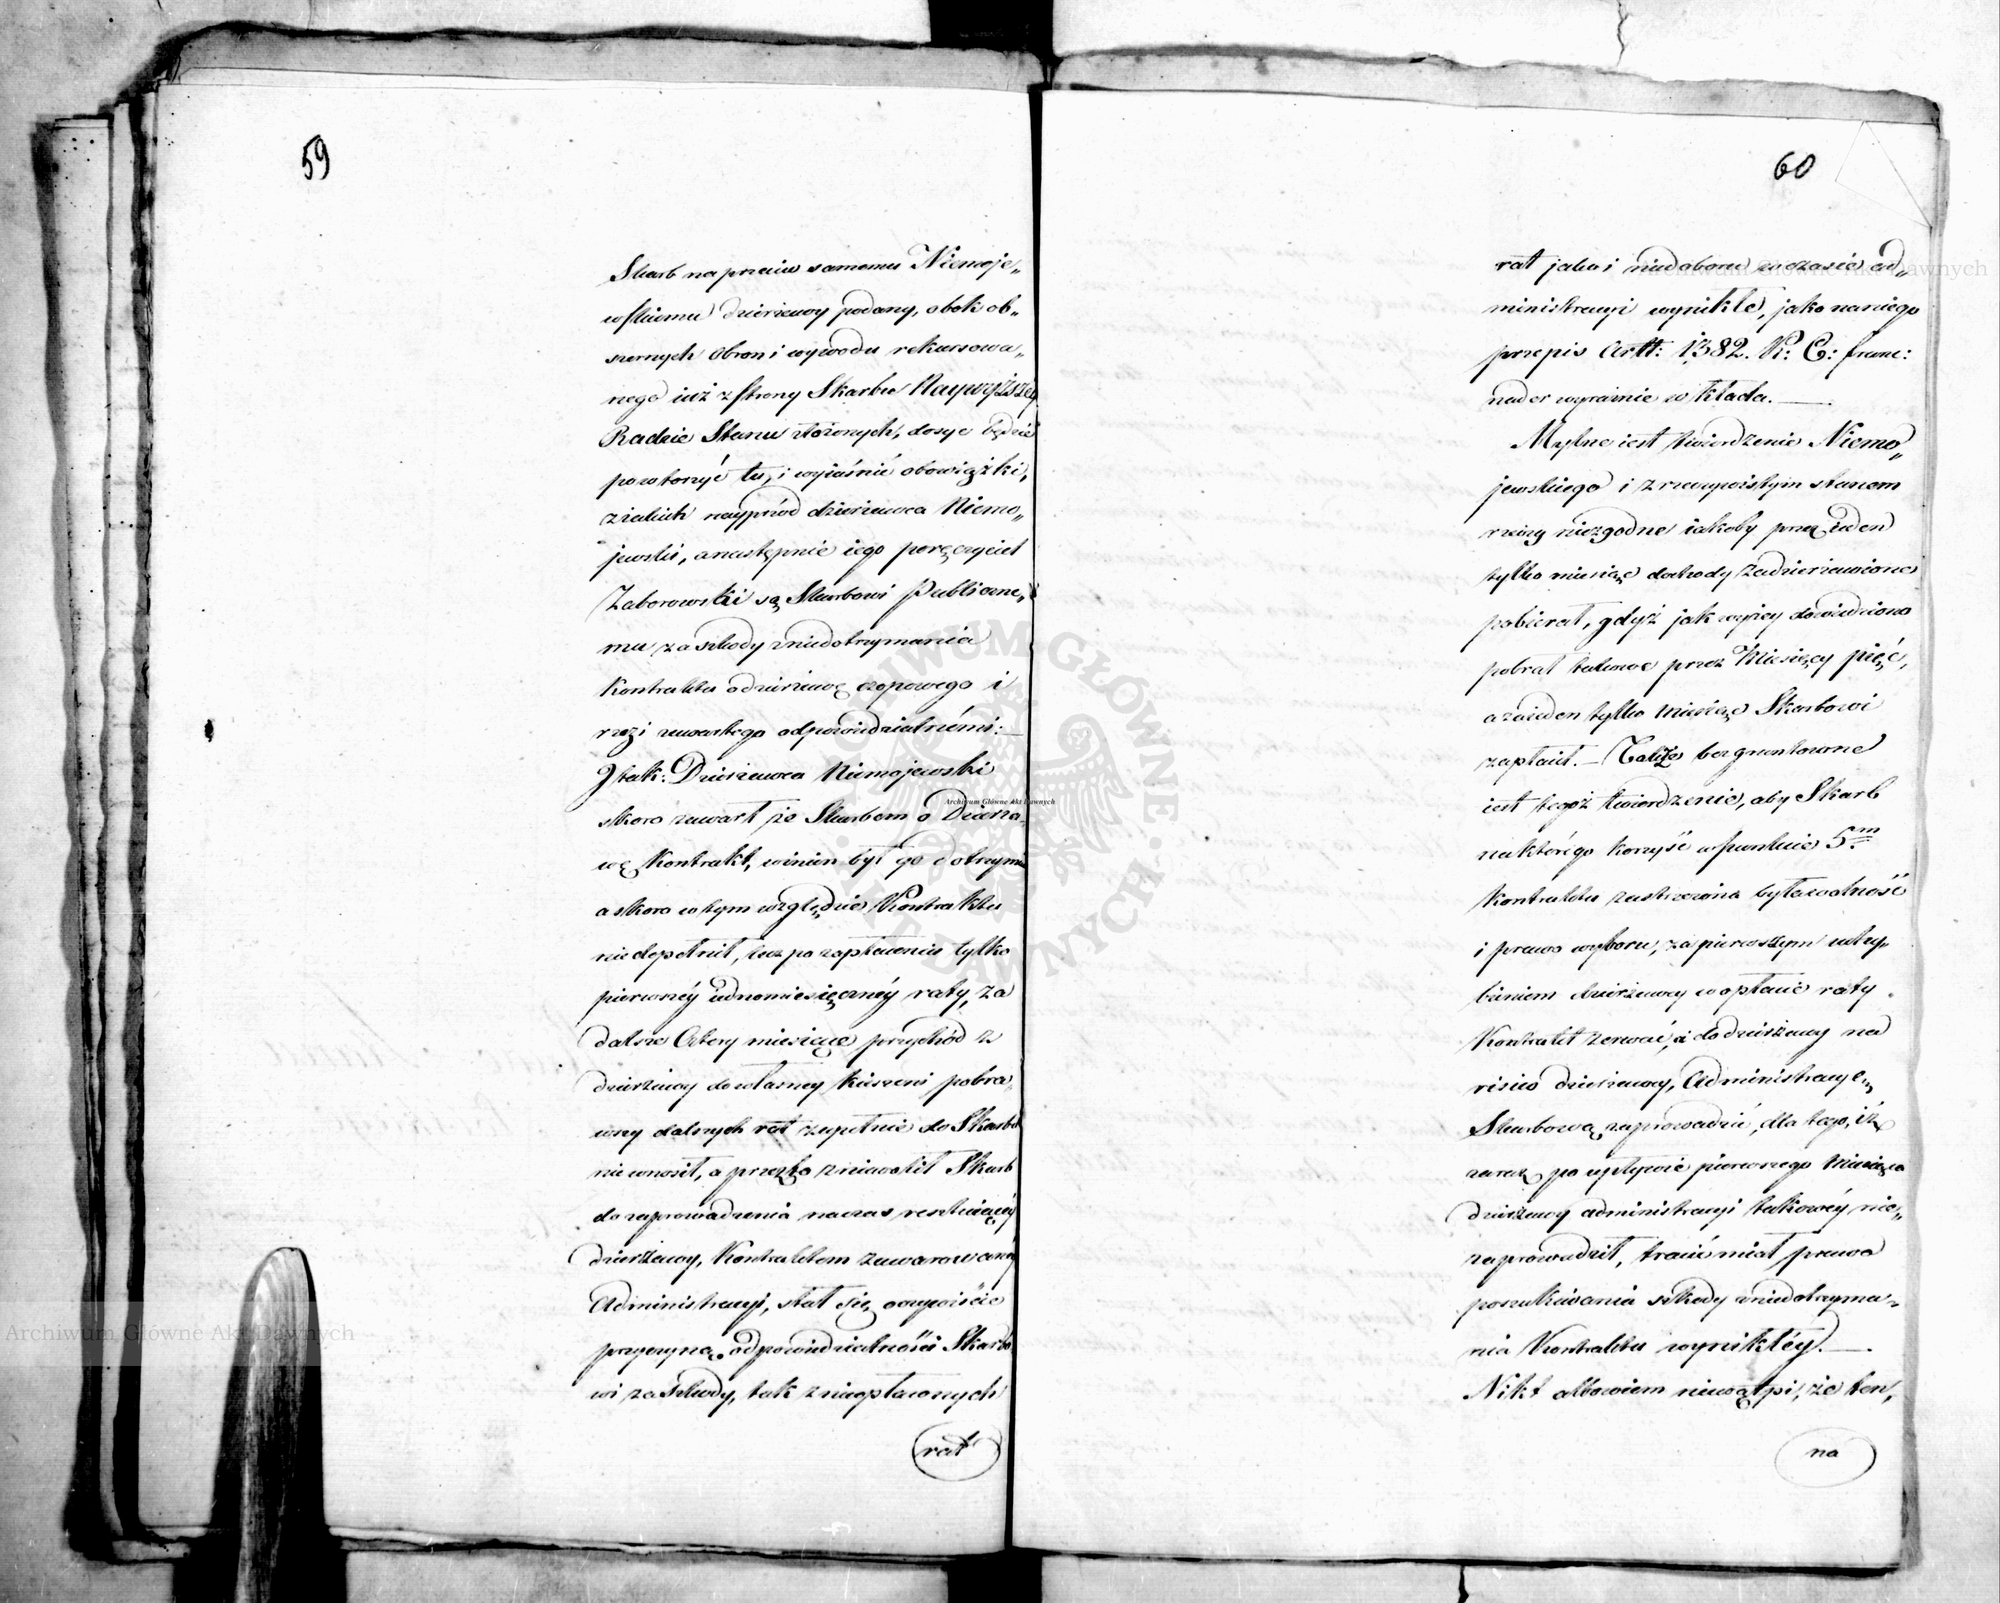 59
Skarb naprzeciw samemu Niemoje„
wskiemu dzierzawy podany, obok ob„
szernych obron i wywodu rekursowa„
nego iuż z strony Skarbu Naywyższey
Radzie Stanu złożonych, dosyc będzie
powtorzyć tu, i wyiaśnić obowiązki,
z iakich nayprzód dzierzawca Niemo„
jewski, a następnie iego poręczyciel
Zaborowski są Skarbowi Publiczne„
mu za szkody z niedotrzymania
Kontraktu o dzierzawę czopowego i
rzezi zawartego odpowiedzialnémi:
I tak: Dzierzawca Niemojewski
skoro zawarł ze Skarbem o Dzierza„
wę Kontrakt, winien był go dotrzymać
a skoro w tym względzie Kontraktu
nie dopełnił, lecz po zapłaceniu tylko
pierwszéy iednomiesięcznéy raty, za
dalsze Cztery miesiące przychód z
dzierżawy do własney kieszeni pobra„
wszy dalszych rat zupełnie do Skarbu
nie wnosił, a przezto zniewolił Skarb
do zaprowadzenia na czas resztuiącéy
dzierżawy, Kontraktem zawarowanéy
Administracyi, stał się oczywiście
przyczyną odpowiedzialności Skarbo
wi za szkody, tak z nieopłaconych
rat
60
rat jako i niedoboru w czasie ad„
ministracyi wynikłe, jako na niego
przepis Artt: 1382. K: C: franc:
nader wyraźnie wkłada.
Mylne iest twierdzenie Niemo„
jewskiego i z rzeczywistym stanem
rzeczy niezgodne iakoby przez ieden
tylko miesiąc dochody zadzierzawione
pobierał, gdyż jak wyżey dowiedziono
pobrał takowe przez Miesięcy pięć,
a za ieden tylko Miesiąc Skarbowi
zapłacił. – Także bezgruntowne
iest tegoż twierdzenie, aby Skarb
na którégo korzyść w punkcie 5m
Kontraktu zastrzeżona była wolność
i prawo wyboru, za pierwszym uchy„
bieniem dzierżawcy w opłacie raty
Kontrakt zerwać, i do dzierżawy na
risico dzierżawcy, Administracyę
Skarbową zaprowadzić, dla tego, iż
zaraz po upływie pierwszego Miesiąca
dzierżawy administracyi takowéy nie„
zaprowadził, tracić miał prawo
poszukiwania szkody z niedotrzyma„
nia Kontraktu wynikłéy.
Nikt albowiem niewątpi, że ten,
na
Archiwum Główne Akt Dawnych